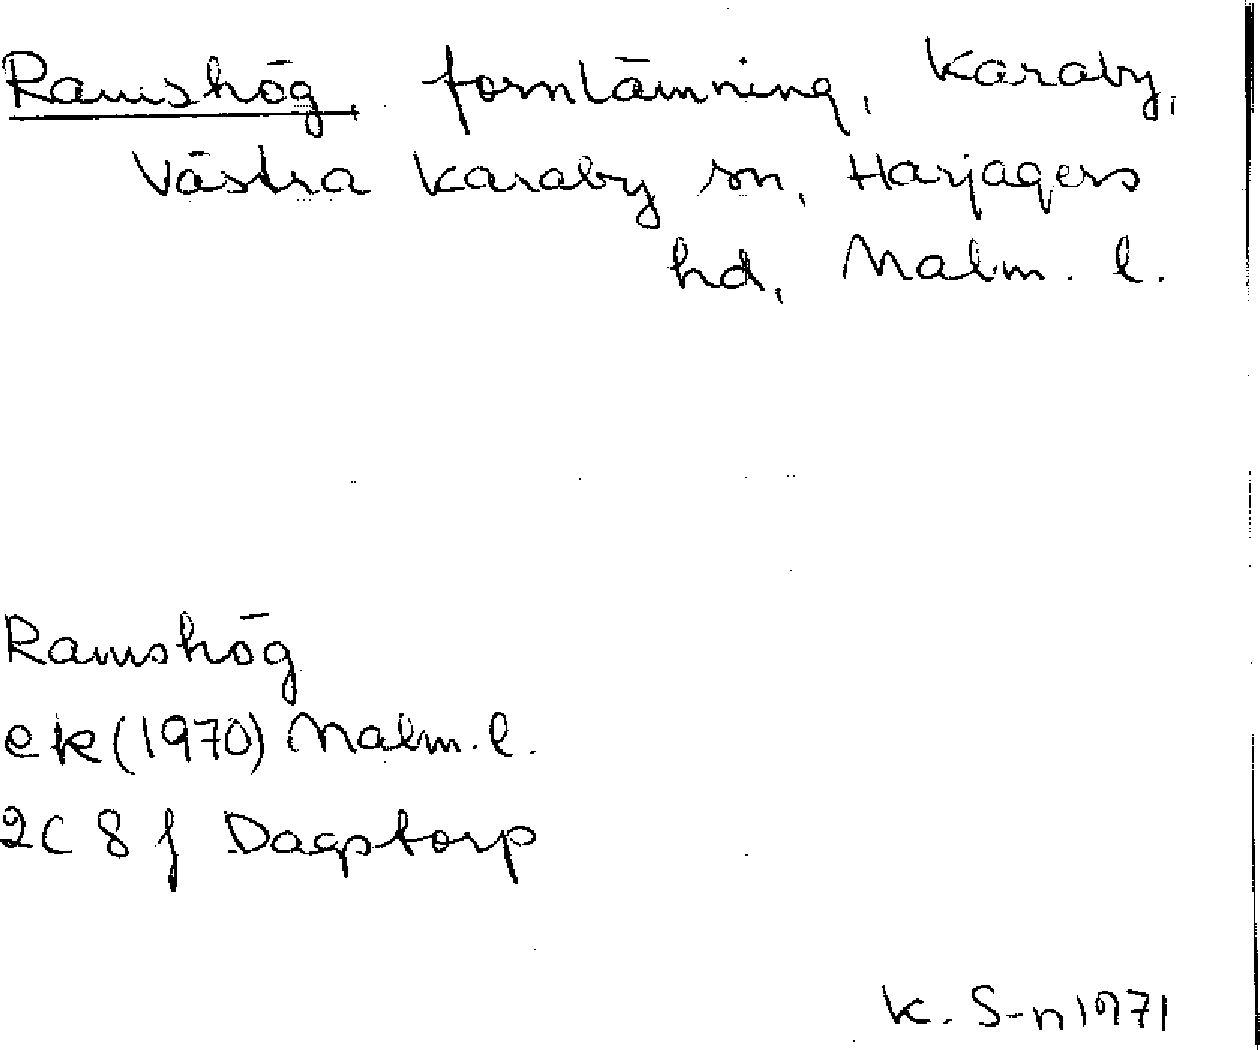 Ramshög, fornlämning, Karaby,
Västra Karaby sn, Harjagers
hd, Malm. l.
Ramshög
ek (1970) Malm. l.
2C 8 f Dagstorp
K. S-n 1971